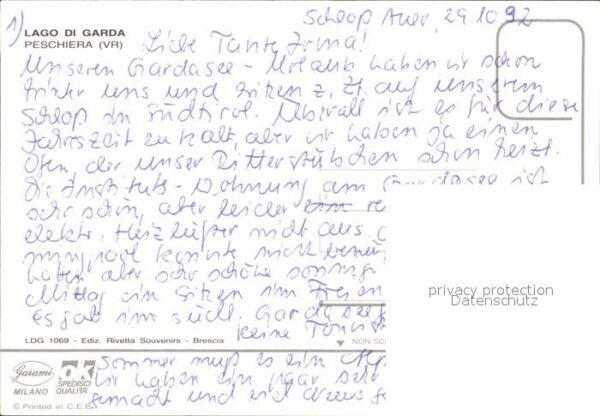 1)
LAGO DI GARDA
PESCHIERA (VR)
Schloß Auer, 29.10.92
Liebe Tante Irma!
Unseren Gardasee-Urlaub haben wir schon
hinter uns und sitzen z. Zt. auf unserem
Schloß in Südtirol. Überall ist es für diese
Jahreszeit zu kalt, aber wir haben ja einen
Ofen, der unser Ritterstübchen schon heizt.
Die Instituts-Wohnung am Gardasee ist
sehr schön, aber leider
elektr. Heizlüfter nicht aus
konnte nicht
hatten aber sehr schöne sonnige
Mittag im Sitzen im Freien
Es gab im südl. Gardasee
keine
LDG 1069 - Ediz. Rivetta Souvenirs - Brescia
NON SC
Sommer muß es ein
Wir haben ein paar
gemacht und viel
Garami
MILANO
OK
SPEDISCI
QUALITA'
© Printed in C.E.
privacy protection
Datenschutz